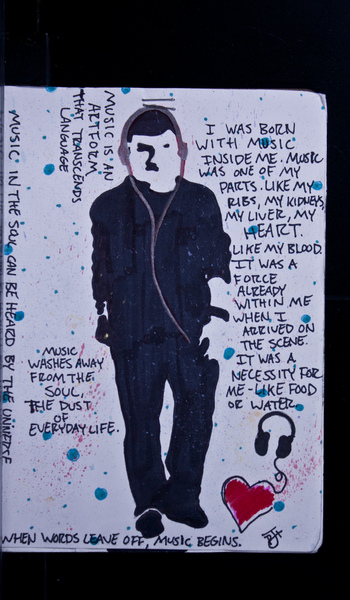 MUSIC IN THE SOUL CAN BE HEARD BY THE UNIVERSE
MUSIC IS AN
ARTFORM
THAT TRANSCENDS
LANGUAGE
I WAS BORN
WITH MUSIC
INSIDE ME. MUSIC
WAS ONE OF MY
PARTS. LIKE MY
RIBS, MY KIDNEYS,
MY LIVER, MY
HEART.
LIKE MY BLOOD.
IT WAS A
FORCE
ALREADY
WITHIN ME
WHEN I
ARRIVED ON
THE SCENE.
IT WAS A
NECESSITY FOR
ME-LIKE FOOD
OR WATER.
MUSIC
WASHES AWAY
FROM THE
SOUL,
THE DUST
OF
EVERYDAY LIFE.
WHEN WORDS LEAVE OFF, MUSIC BEGINS.